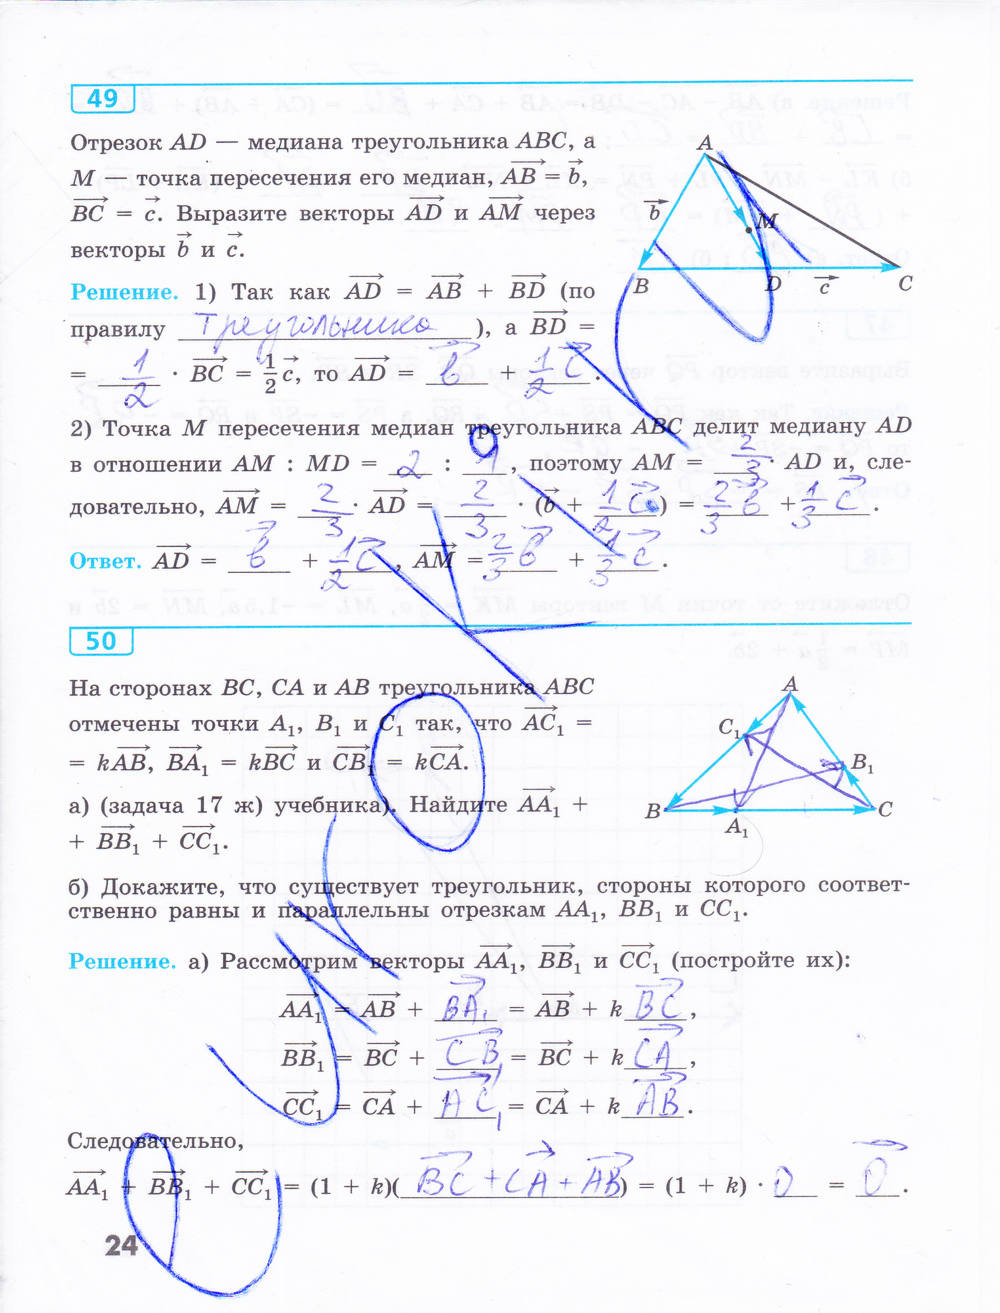 49
Отрезок AD — медиана треугольника ABC, а
M — точка пересечения его медиан, AB = b,
BC = c. Выразите векторы AD и AM через
векторы b и c.
A
b
M
B
D
c
C
Решение. 1) Так как AD = AB + BD (по
правилу треугольника), а BD =
= 1/2 · BC = 1/2 c, то AD = b + 1/2 c.
2) Точка M пересечения медиан треугольника ABC делит медиану AD
в отношении AM : MD = 2 : 1, поэтому AM = 2/3 · AD и, сле-
довательно, AM = 2/3 · AD = 2/3 · (b + 1/2 c) = 2/3 b + 1/3 c.
Ответ. AD = b + 1/2 c, AM = 2/3 b + 1/3 c.
50
На сторонах BC, CA и AB треугольника ABC
отмечены точки A₁, B₁ и C₁ так, что AC₁ =
= kAB, BA₁ = kBC и CB₁ = kCA.
а) (задача 17 ж) учебника). Найдите AA₁ +
+ BB₁ + CC₁.
A
C₁
B₁
B
A₁
C
б) Докажите, что существует треугольник, стороны которого соответ-
ственно равны и параллельны отрезкам AA₁, BB₁ и CC₁.
Решение. а) Рассмотрим векторы AA₁, BB₁ и CC₁ (постройте их):
AA₁ = AB + BA₁ = AB + k BC,
BB₁ = BC + CB₁ = BC + k CA,
CC₁ = CA + AC₁ = CA + k AB.
Следовательно,
AA₁ + BB₁ + CC₁ = (1 + k)(BC + CA + AB) = (1 + k) · 0 = 0.
24